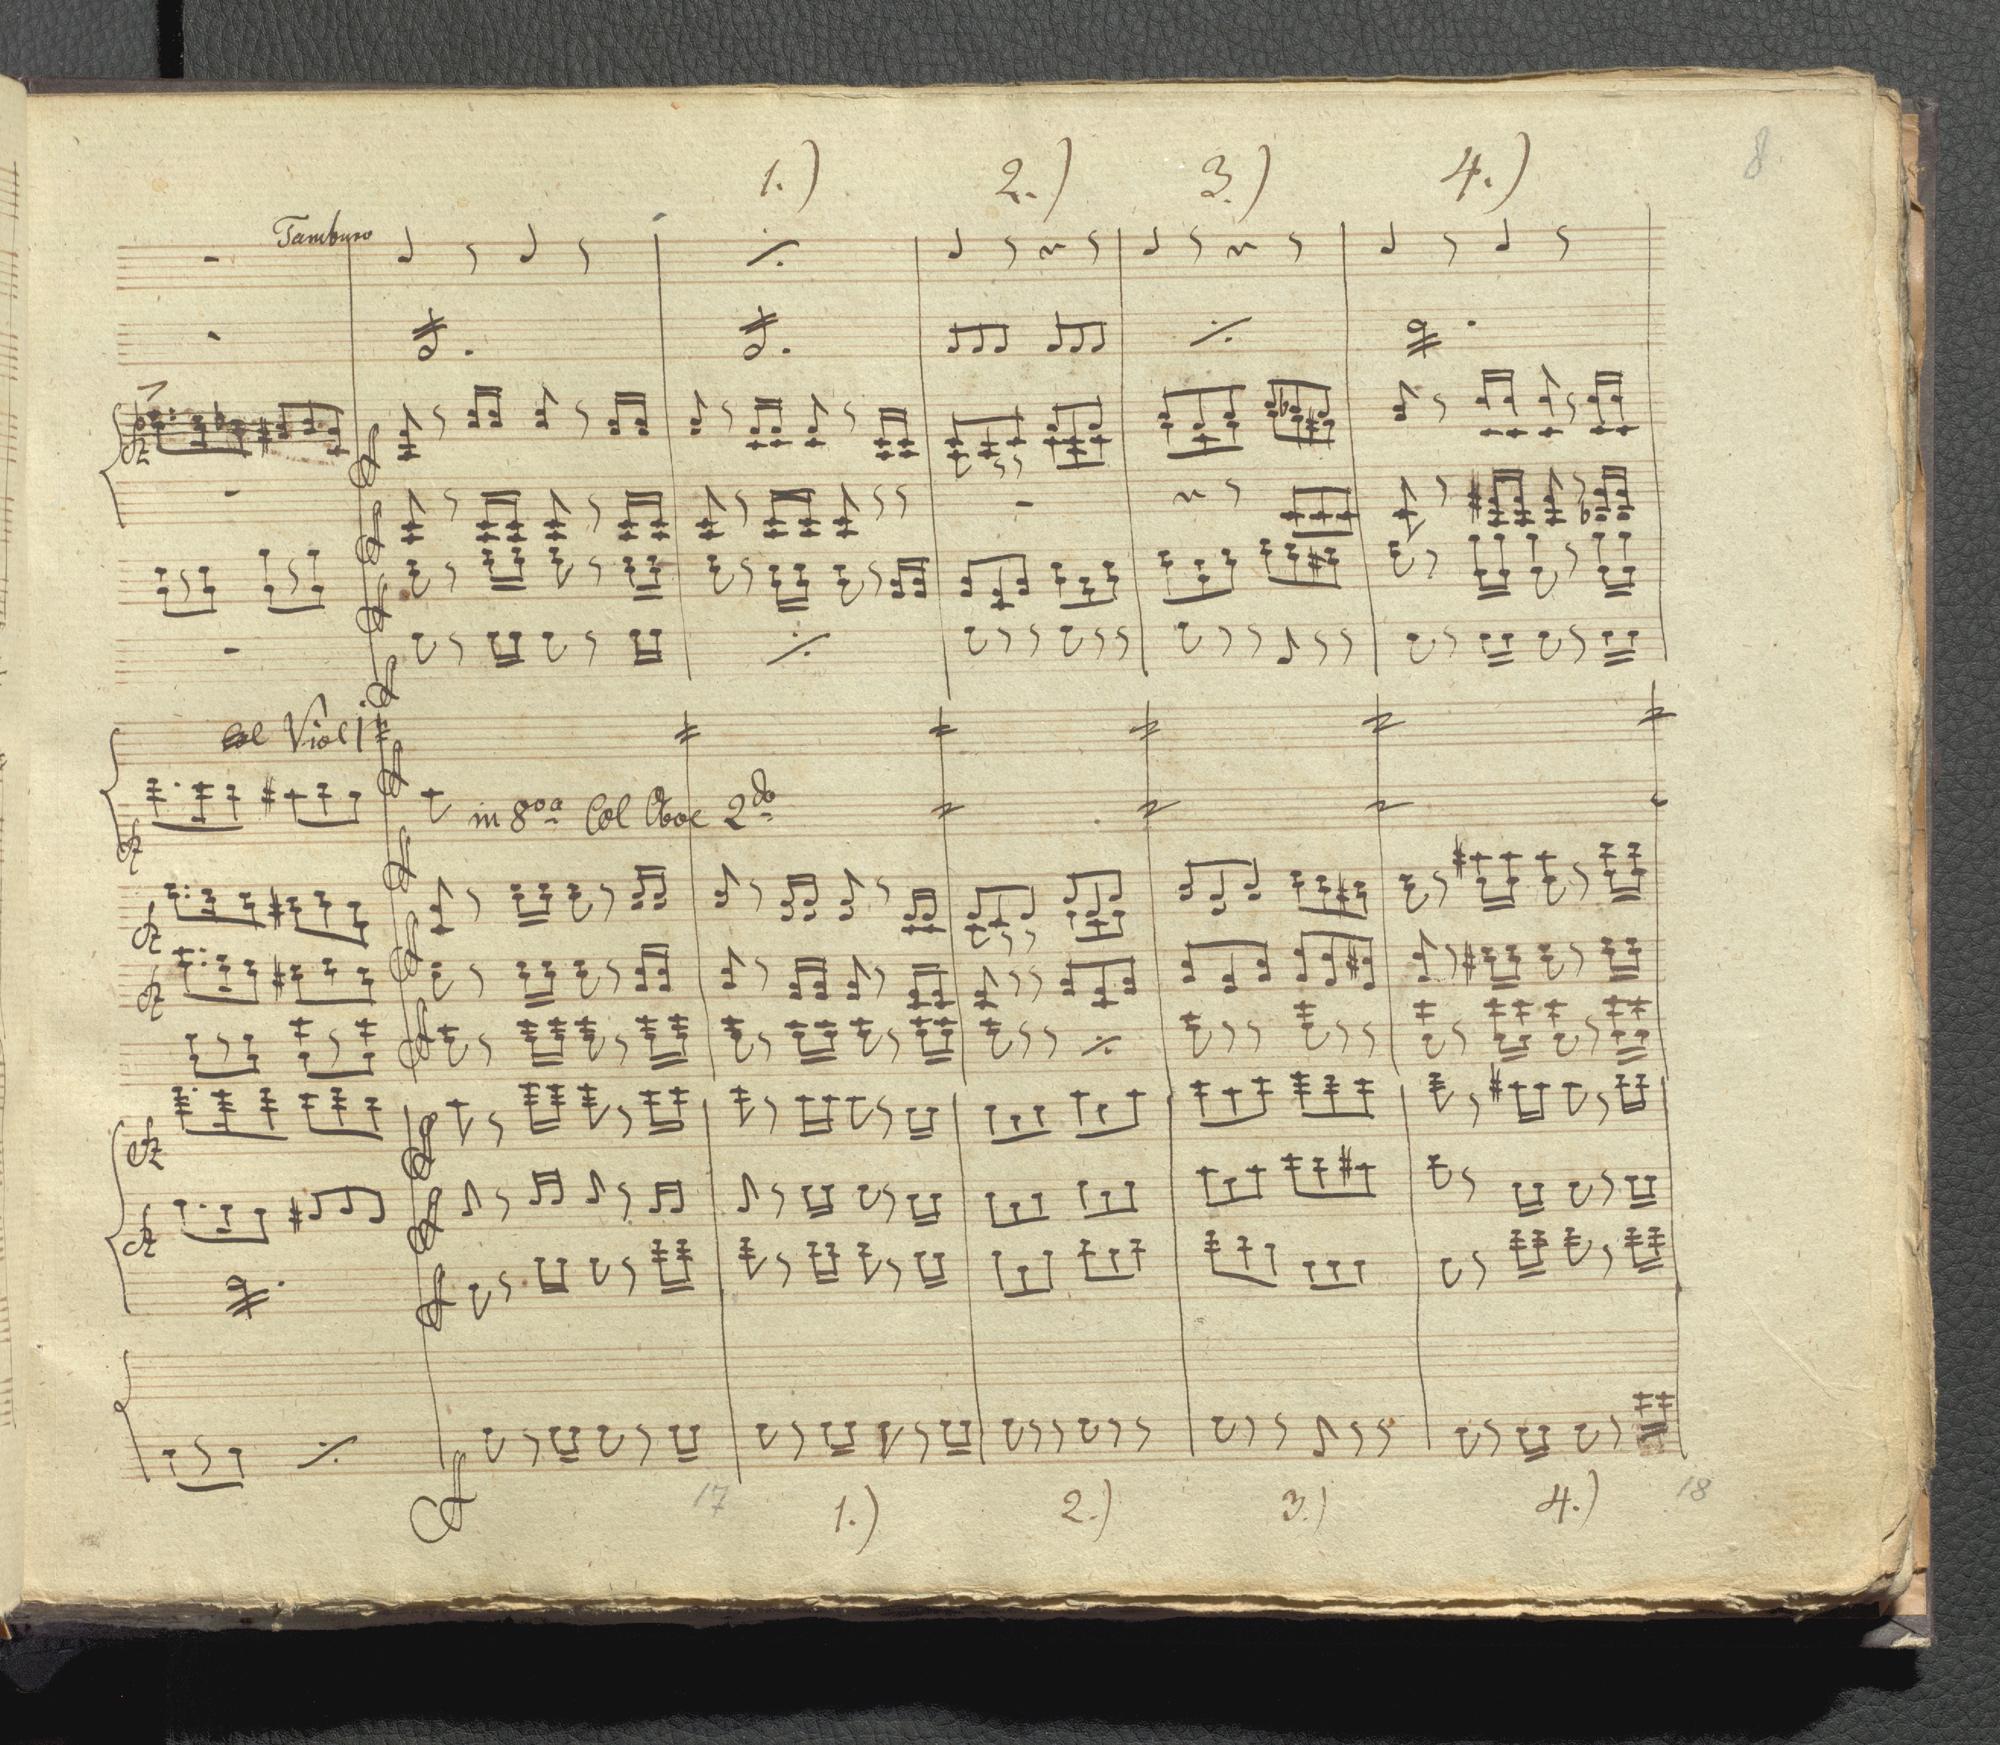 8
1.) 2.) 3.) 4.)
Tamburo
Col Viol 1
in 8va Col Oboe 2do
17 18
1.) 2.) 3.) 4.)